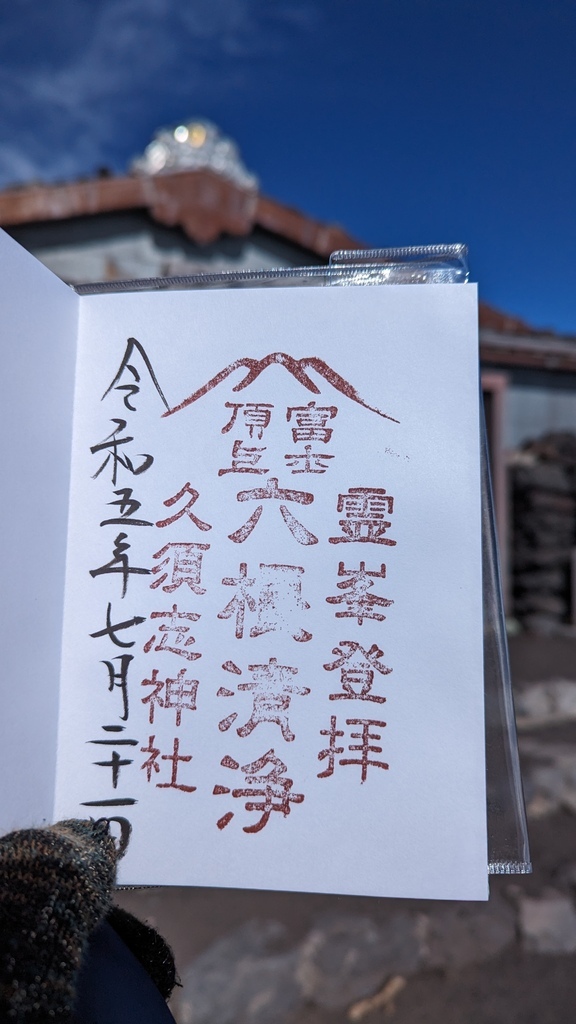 霊峯登拝
富士
頂上
六根清浄
久須志神社
令和五年七月二十一日